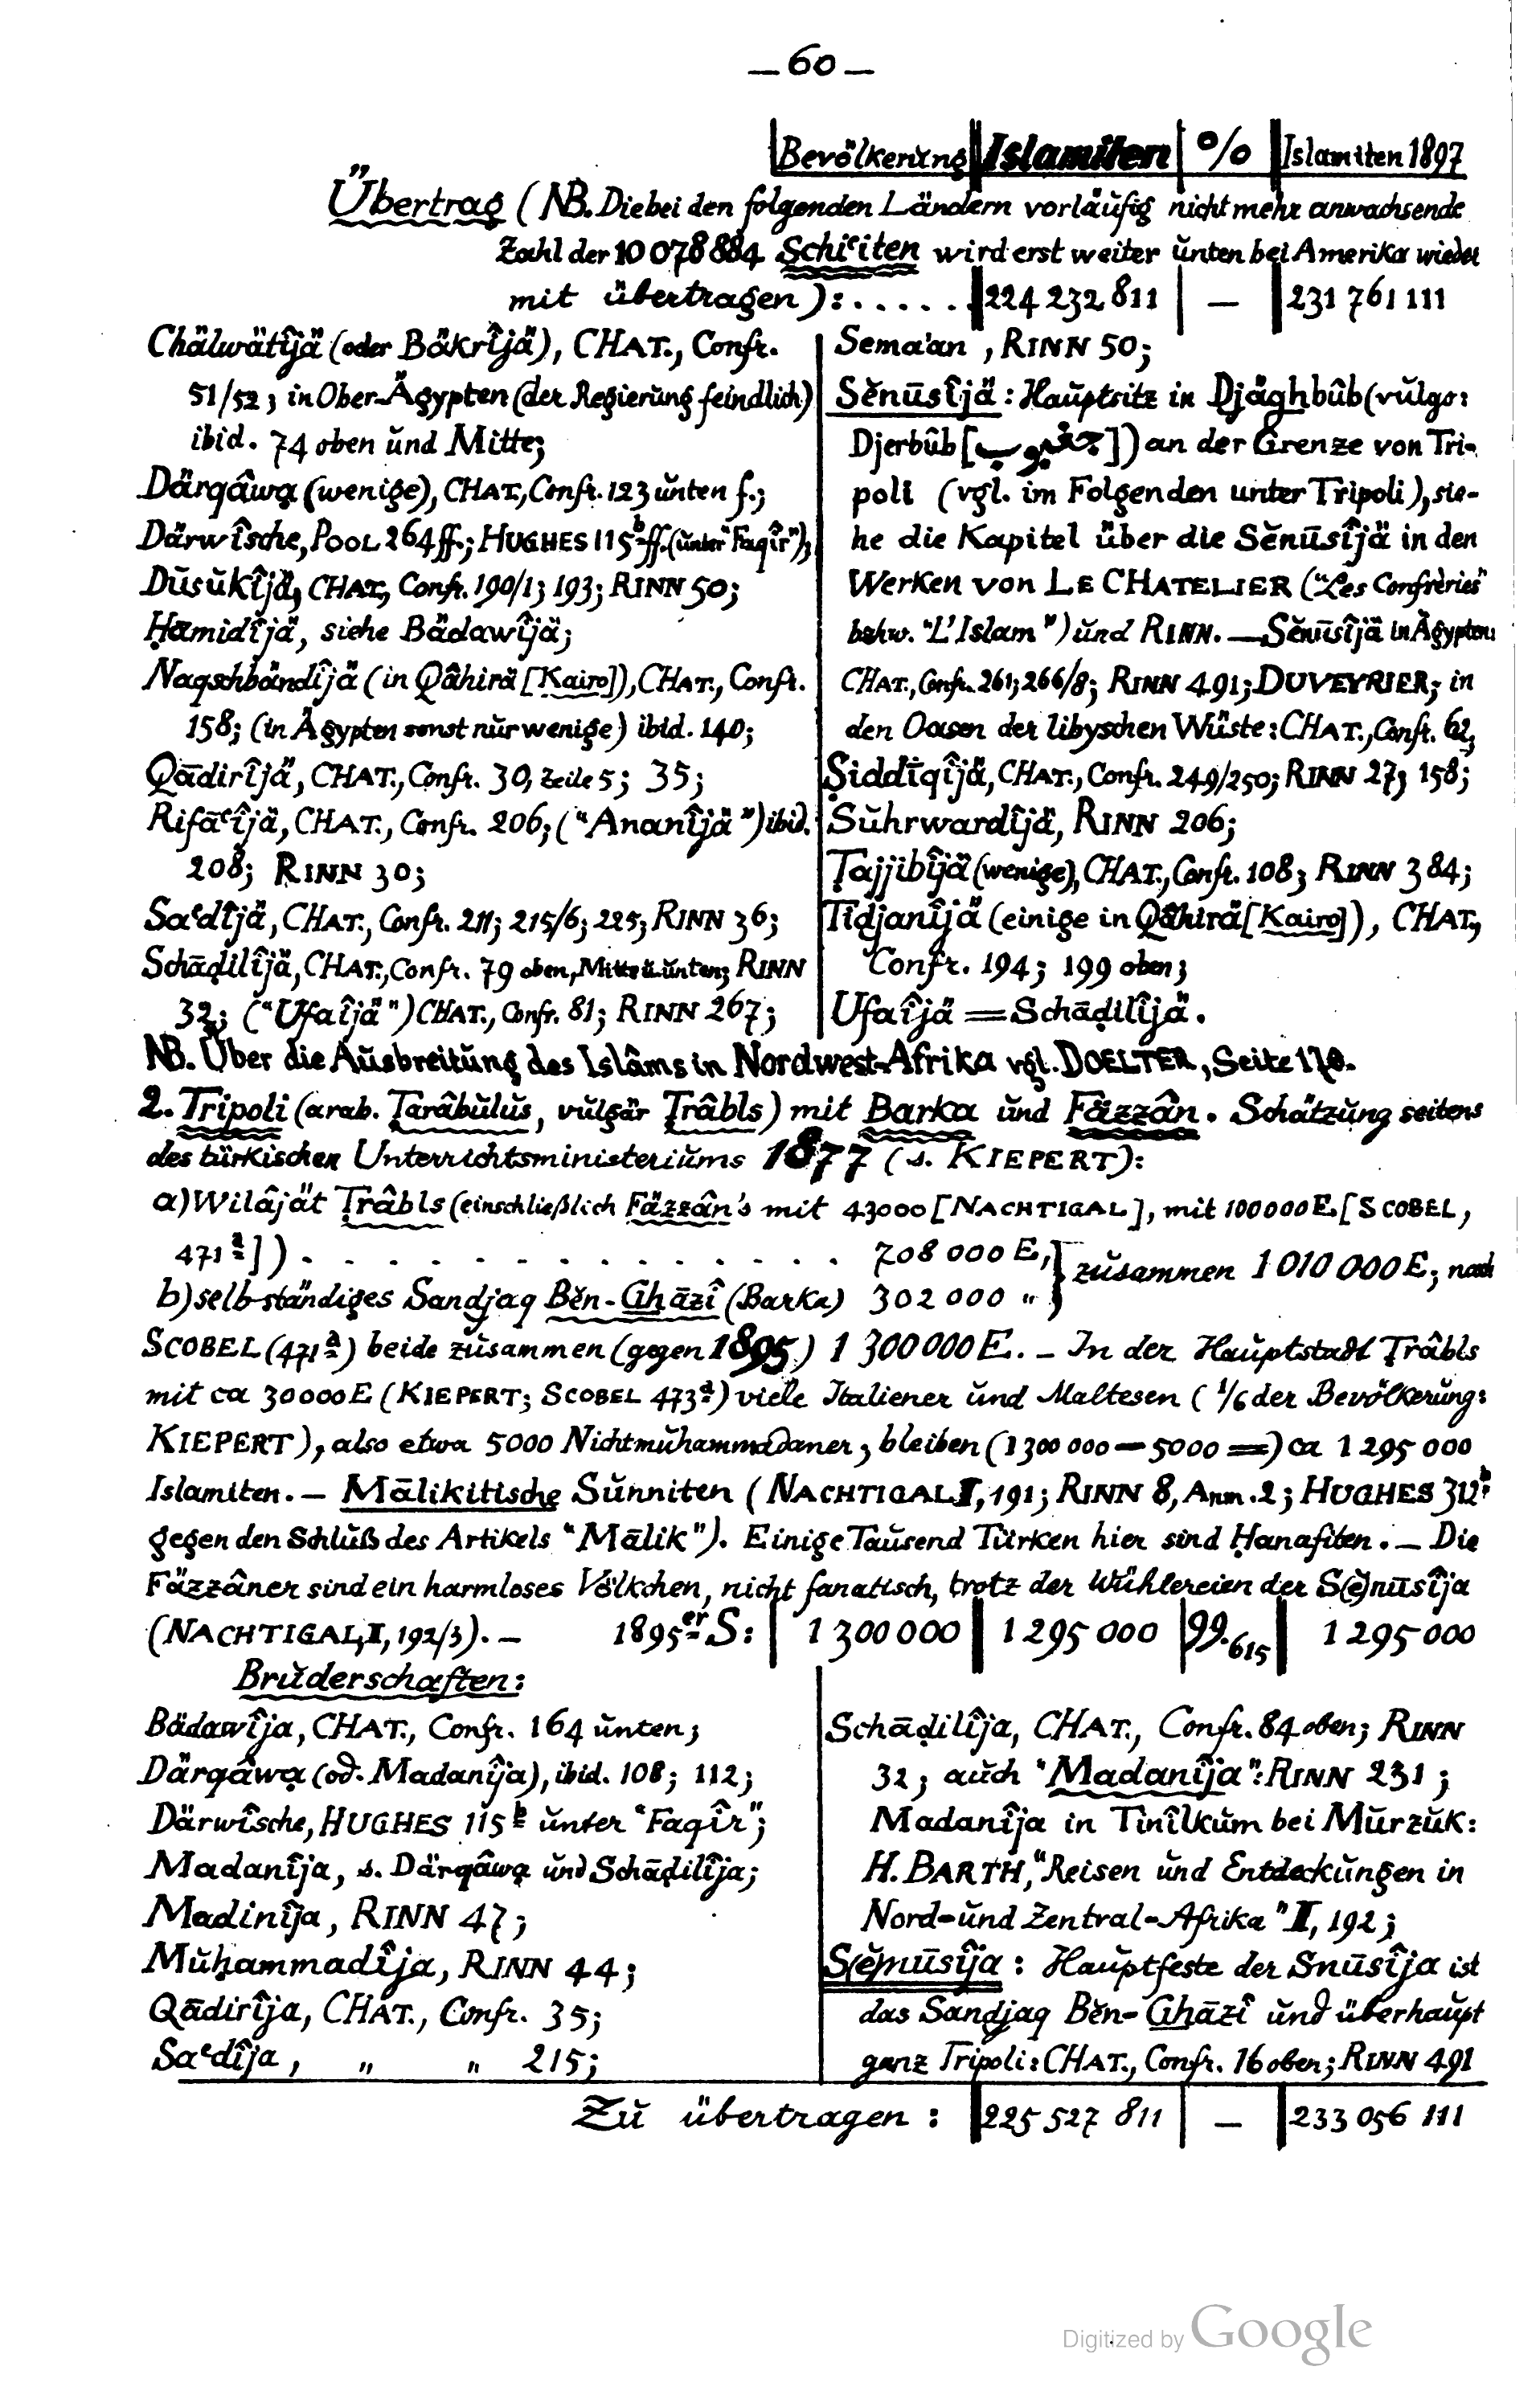 — 60 —
Bevölkerung Islamiten % Islamiten 1897
Übertrag (NB. Die bei den folgenden Ländern vorläufig nicht mehr anwachsende
Zahl der 10 078 884 Schiʿiten wird erst weiter unten bei Amerika wieder
mit übertragen): . . . . . 224 232 811 — 231 761 111
Chälwätîjä (oder Bäkrîjä), CHAT., Confr.
51/52; in Ober-Ägypten (der Regierung feindlich)
ibid. 74 oben und Mitte;
Därqâwạ (wenige), CHAT., Confr. 123 unten f.;
Därwîsche, POOL 264 ff.; HUGHES 115 b ff. (unter "Faqîr");
Dusukîjä, CHAT., Confr. 190/1; 193; RINN 50;
Ḥamidîjä, siehe Bädawîjä;
Naqschbändîjä (in Qâhirä [Kairo]), CHAT., Confr.
158; (in Ägypten sonst nur wenige) ibid. 140;
Qādirîjä, CHAT., Confr. 30, Zeile 5; 35;
Rifāʿîjä, CHAT., Confr. 206; ("Ananîjä") ibid.
208; RINN 30;
Saʿdîjä, CHAT., Confr. 211; 215/6; 225; RINN 36;
Schāḍilîjä, CHAT., Confr. 79 oben, Mitte u. unten; RINN
32; ("Ufaîjä") CHAT., Confr. 81; RINN 267;
Semaʾan, RINN 50;
Sĕnūsîjä: Hauptsitz in Djäghbûb (vulgo:
Djerbûb [جغبوب]) an der Grenze von Tri-
poli (vgl. im Folgenden unter Tripoli), sie-
he die Kapitel über die Sĕnūsîjä in den
Werken von LE CHATELIER ("Les Confrèries"
bzhw. "L'Islam") und RINN. — Sĕnūsîjä in Ägypten:
CHAT., Confr. 261; 266/8; RINN 491; DUVEYRIER; in
den Oasen der libyschen Wüste: CHAT., Confr. 62;
Ṣiddīqîjä, CHAT., Confr. 249/250; RINN 27; 158;
Suhrwardîjä, RINN 206;
Ṭajjibîjä (wenige), CHAT., Confr. 108; RINN 384;
Tidjanîjä (einige in Qâhirä [Kairo]), CHAT.,
Confr. 194; 199 oben;
Ufaîjä = Schāḍilîjä.
NB. Über die Ausbreitung des Islâms in Nordwest-Afrika vgl. DOELTER, Seite 170.
2. Tripoli (arab. Ṭarâbulus, vulgär Ṭrâbls) mit Barka und Fäzzân. Schätzung seitens
des türkischen Unterrichtsministeriums 1877 (s. KIEPERT):
a) Wilâjät Ṭrâbls (einschließlich Fäzzân's mit 43000 [NACHTIGAL], mit 100 000 E. [SCOBEL,
471 a]) . . . . . . . . . . . 708 000 E., } zusammen 1 010 000 E.; nach
b) selbständiges Sandjaq Bĕn-Ghāzî (Barka) 302 000 "
SCOBEL (471 a) beide zusammen (gegen 1895) 1 300 000 E. — In der Hauptstadt Ṭrâbls
mit ca 30 000 E (KIEPERT; SCOBEL 473 a) viele Italiener und Maltesen (1/6 der Bevölkerung:
KIEPERT), also etwa 5000 Nichtmuhammadaner; bleiben (1 300 000 — 5000 =) ca 1 295 000
Islamiten. — Mālikitische Sunniten (NACHTIGAL I, 191; RINN 8, Anm. 2; HUGHES 312 b
gegen den Schluß des Artikels "Mālik"). Einige Tausend Türken hier sind Ḥanafiten. — Die
Fäzzâner sind ein harmloses Völkchen, nicht fanatisch, trotz der Wühlereien der S(ĕ)nūsîja
(NACHTIGAL I, 192/3). — 1895er S: 1 300 000 1 295 000 99.615 1 295 000
Bruderschaften:
Bädawîja, CHAT., Confr. 164 unten;
Därqâwạ (od. Madanîja), ibid. 108; 112;
Därwîsche, HUGHES 115 b unter "Faqîr";
Madanîja, s. Därqâwạ und Schāḍilîja;
Madinîja, RINN 47;
Muḥammadîja, RINN 44;
Qādirîja, CHAT., Confr. 35;
Saʿdîja, " " 215;
Schāḍilîja, CHAT., Confr. 84 oben; RINN
32; auch "Madanîja": RINN 231;
Madanîja in Tinîlkum bei Murzuk:
H. BARTH, "Reisen und Entdeckungen in
Nord- und Zentral-Afrika" I, 192;
S(ĕ)nūsîja: Hauptfeste der Snūsîja ist
das Sandjaq Bĕn-Ghāzî und überhaupt
ganz Tripoli: CHAT., Confr. 16 oben; RINN 491
Zu übertragen: 225 527 811 — 233 056 111
Digitized by Google